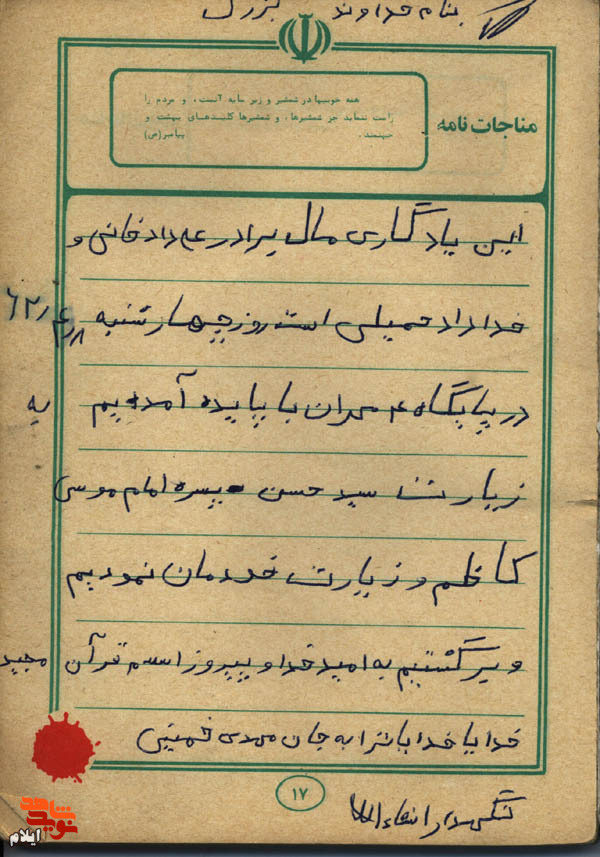 بنام خداوند بزرگ
مناجات نامه
همه خوبیها در شمشیر و زیر سایه آنست، و مردم را
راست ننماید جز شمشیرها، و شمشیرها کلیدهای بهشت و
جهنمند. پیامبر(ص)
این یادگاری مال برادر علی داد خانی و
خداداد حمیلی است روز چهارشنبه ۶۲٫۴٫۸
در پایگاه ۴ مهران با پیاده آمدیم به
زیارت سید حسن پسره امام موسی
کاظم و زیارت خدمان نمودیم
و برگشتیم به امید خدا و پیروز اسلام قرآن مجید
خدایا خدایا ترا به جان مهدی خمینی
نگهدار انشاءالله
۱۷
نوید شاهد
ایلام